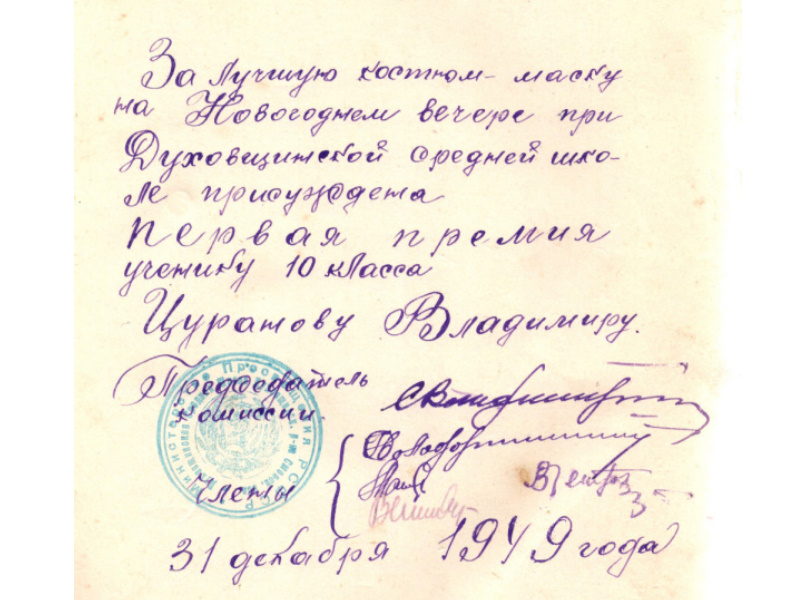 За лучшую костюм-маску
на Новогоднем вечере при
Духовщинской средней шко-
ле присуждена
первая премия
ученику 10 класса
Цуранову Владимиру.
Председатель
комиссии.
Члены
31 декабря 1949 года
Министерство Просвещения РСФСР